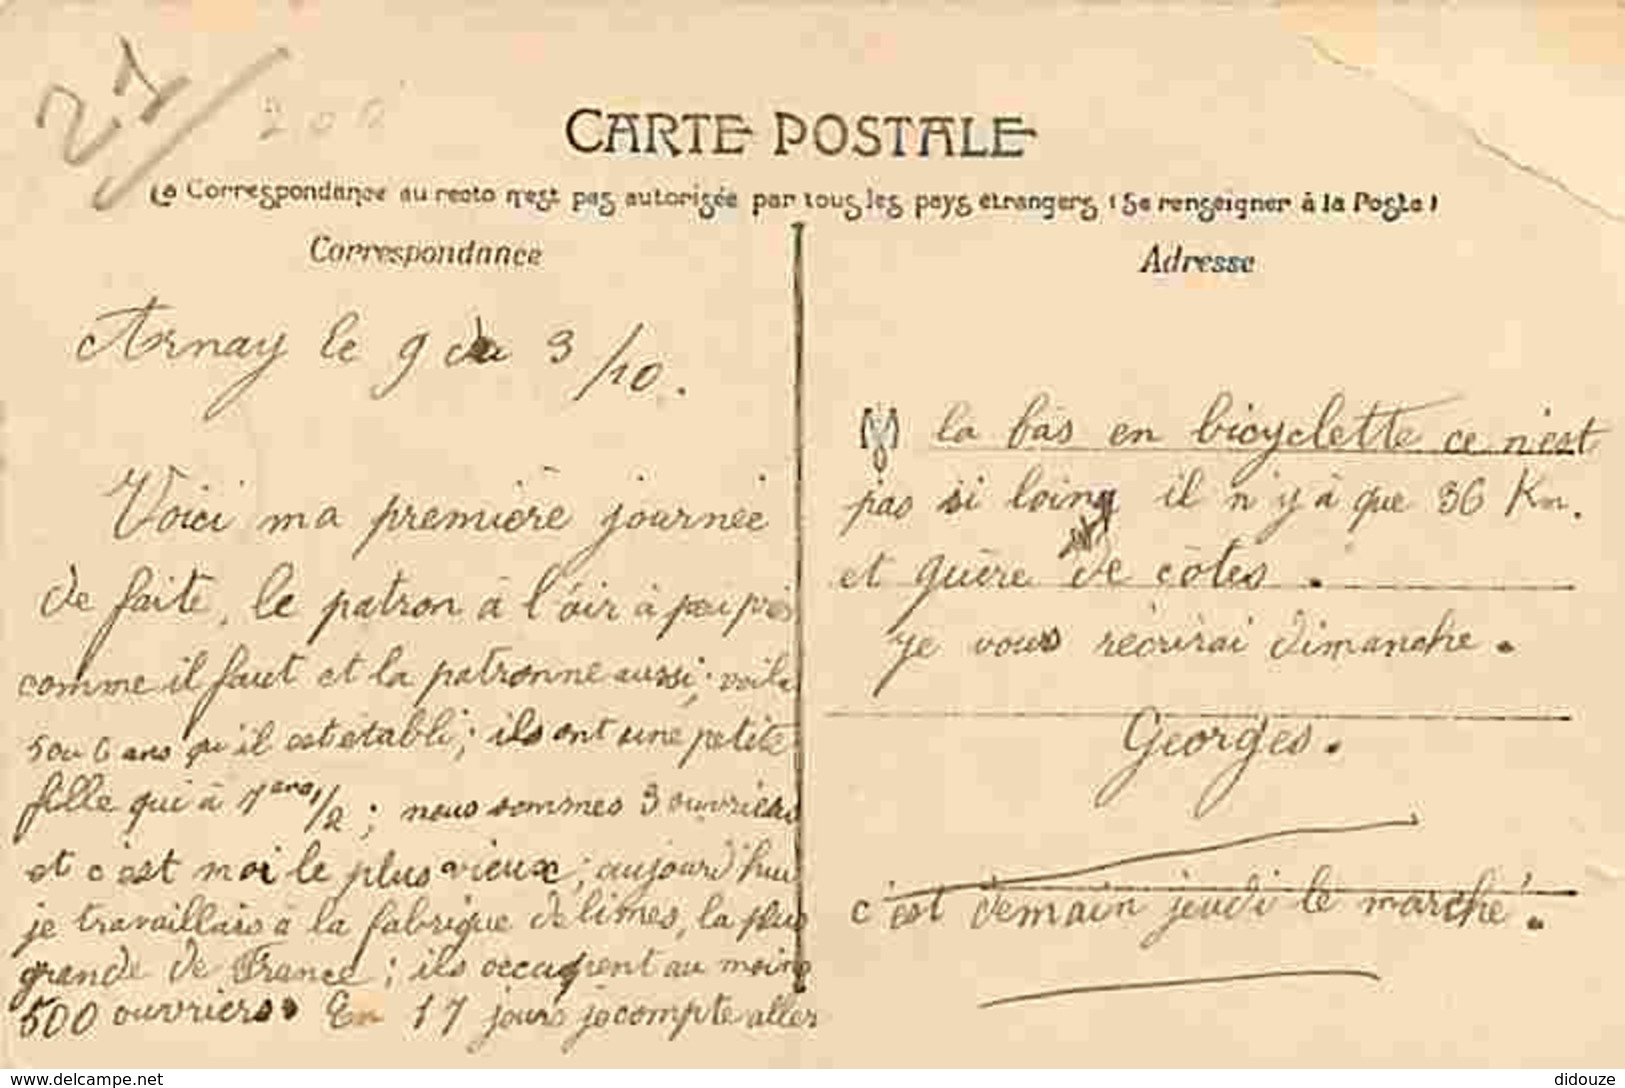 27
200
CARTE POSTALE
La Correspondance au recto n'est pas autorisée par tous les pays étrangers (Se renseigner à la Poste)
Correspondance
Arnay le 9 du 3/10.
Voici ma première journée
de faite, le patron à l'air à peu près
comme il faut et la patronne aussi; voila
5 ou 6 ans qu'il est établi; ils ont une petite
fille qui à 1 ans 1/2; nous sommes 3 ouvriers
et c'est moi le plus vieux; aujourd'hui
je travaillais à la fabrique de limes, la plus
grande de France; ils occupent au moins
500 ouvriers. En 17 jours je compte aller
Adresse
M la bas en bicyclette ce n'est
pas si loing il n'y à que 36 Km.
et guère de côtes.
Je vous récrirai dimanche.
Georges.
c'est demain jeudi le marché.
www.delcampe.net
didouze